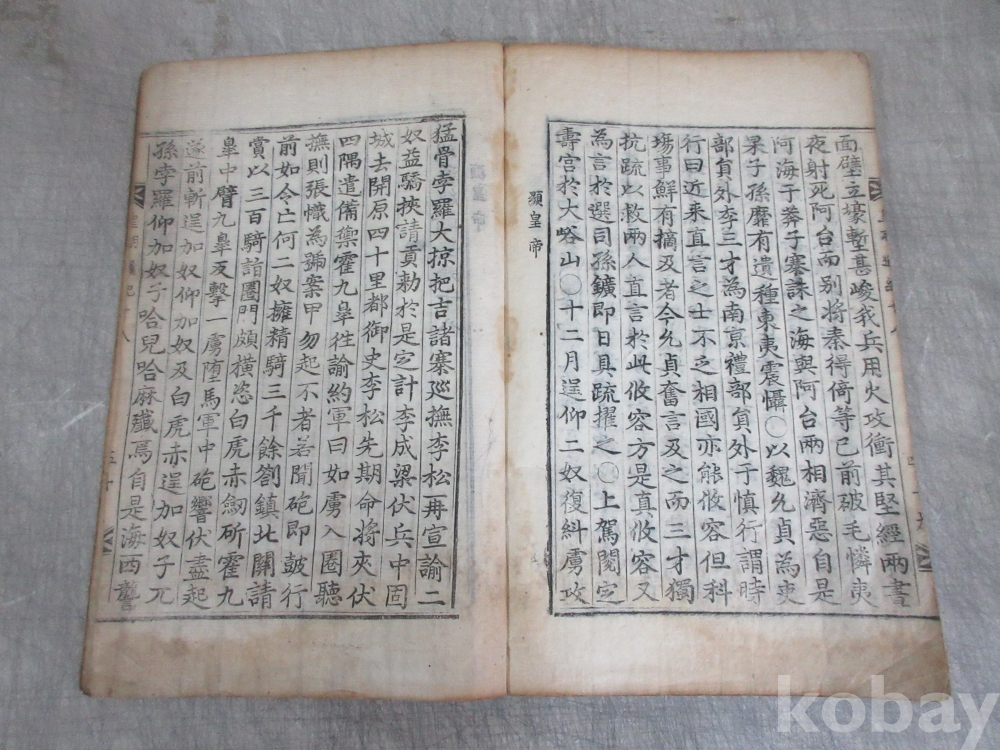 面壁立壕塹甚峻我兵用火攻衝其堅經兩晝
夜射死阿台而别將秦得倚等已前破毛憐夷
阿海于莽子寨誅之海與阿台兩相濟惡自是
果子孫靡有遺種東夷震懾○以魏允貞為吏
部員外李三才為南京禮部員外于慎行謂時
行曰近来直言之士不乏相國亦能收容但科
塲事鮮有摘及者今允貞奮言及之而三才獨
抗疏以救兩人直言於此收容方是真收容又
為言於選司孫鑛即日具疏擢之○上駕閱定
壽宫於大峪山○十二月逞仰二奴復糾虜攻
顯皇帝
猛骨孛羅大掠把吉諸寨廵撫李松再宣諭二
奴益驕挾請貢勅於是定計李成梁伏兵中固
城去開原四十里都御史李松先期命將夾伏
四隅遣備禦霍九皐徃諭約軍曰如虜入圈聽
撫則張幟為號案甲勿起不者若聞砲即鼓行
前如令亡何二奴擁精騎三千餘劄鎮北關請
賞以三百騎詣圈門頗横恣白虎赤劒斫霍九
皐中臂九皐反擊一虜堕馬軍中砲響伏盡起
遂前斬逞加奴仰加奴及白虎赤逞加奴子兀
孫孛羅仰加奴子哈兒哈麻殲焉自是海西讋
kobay